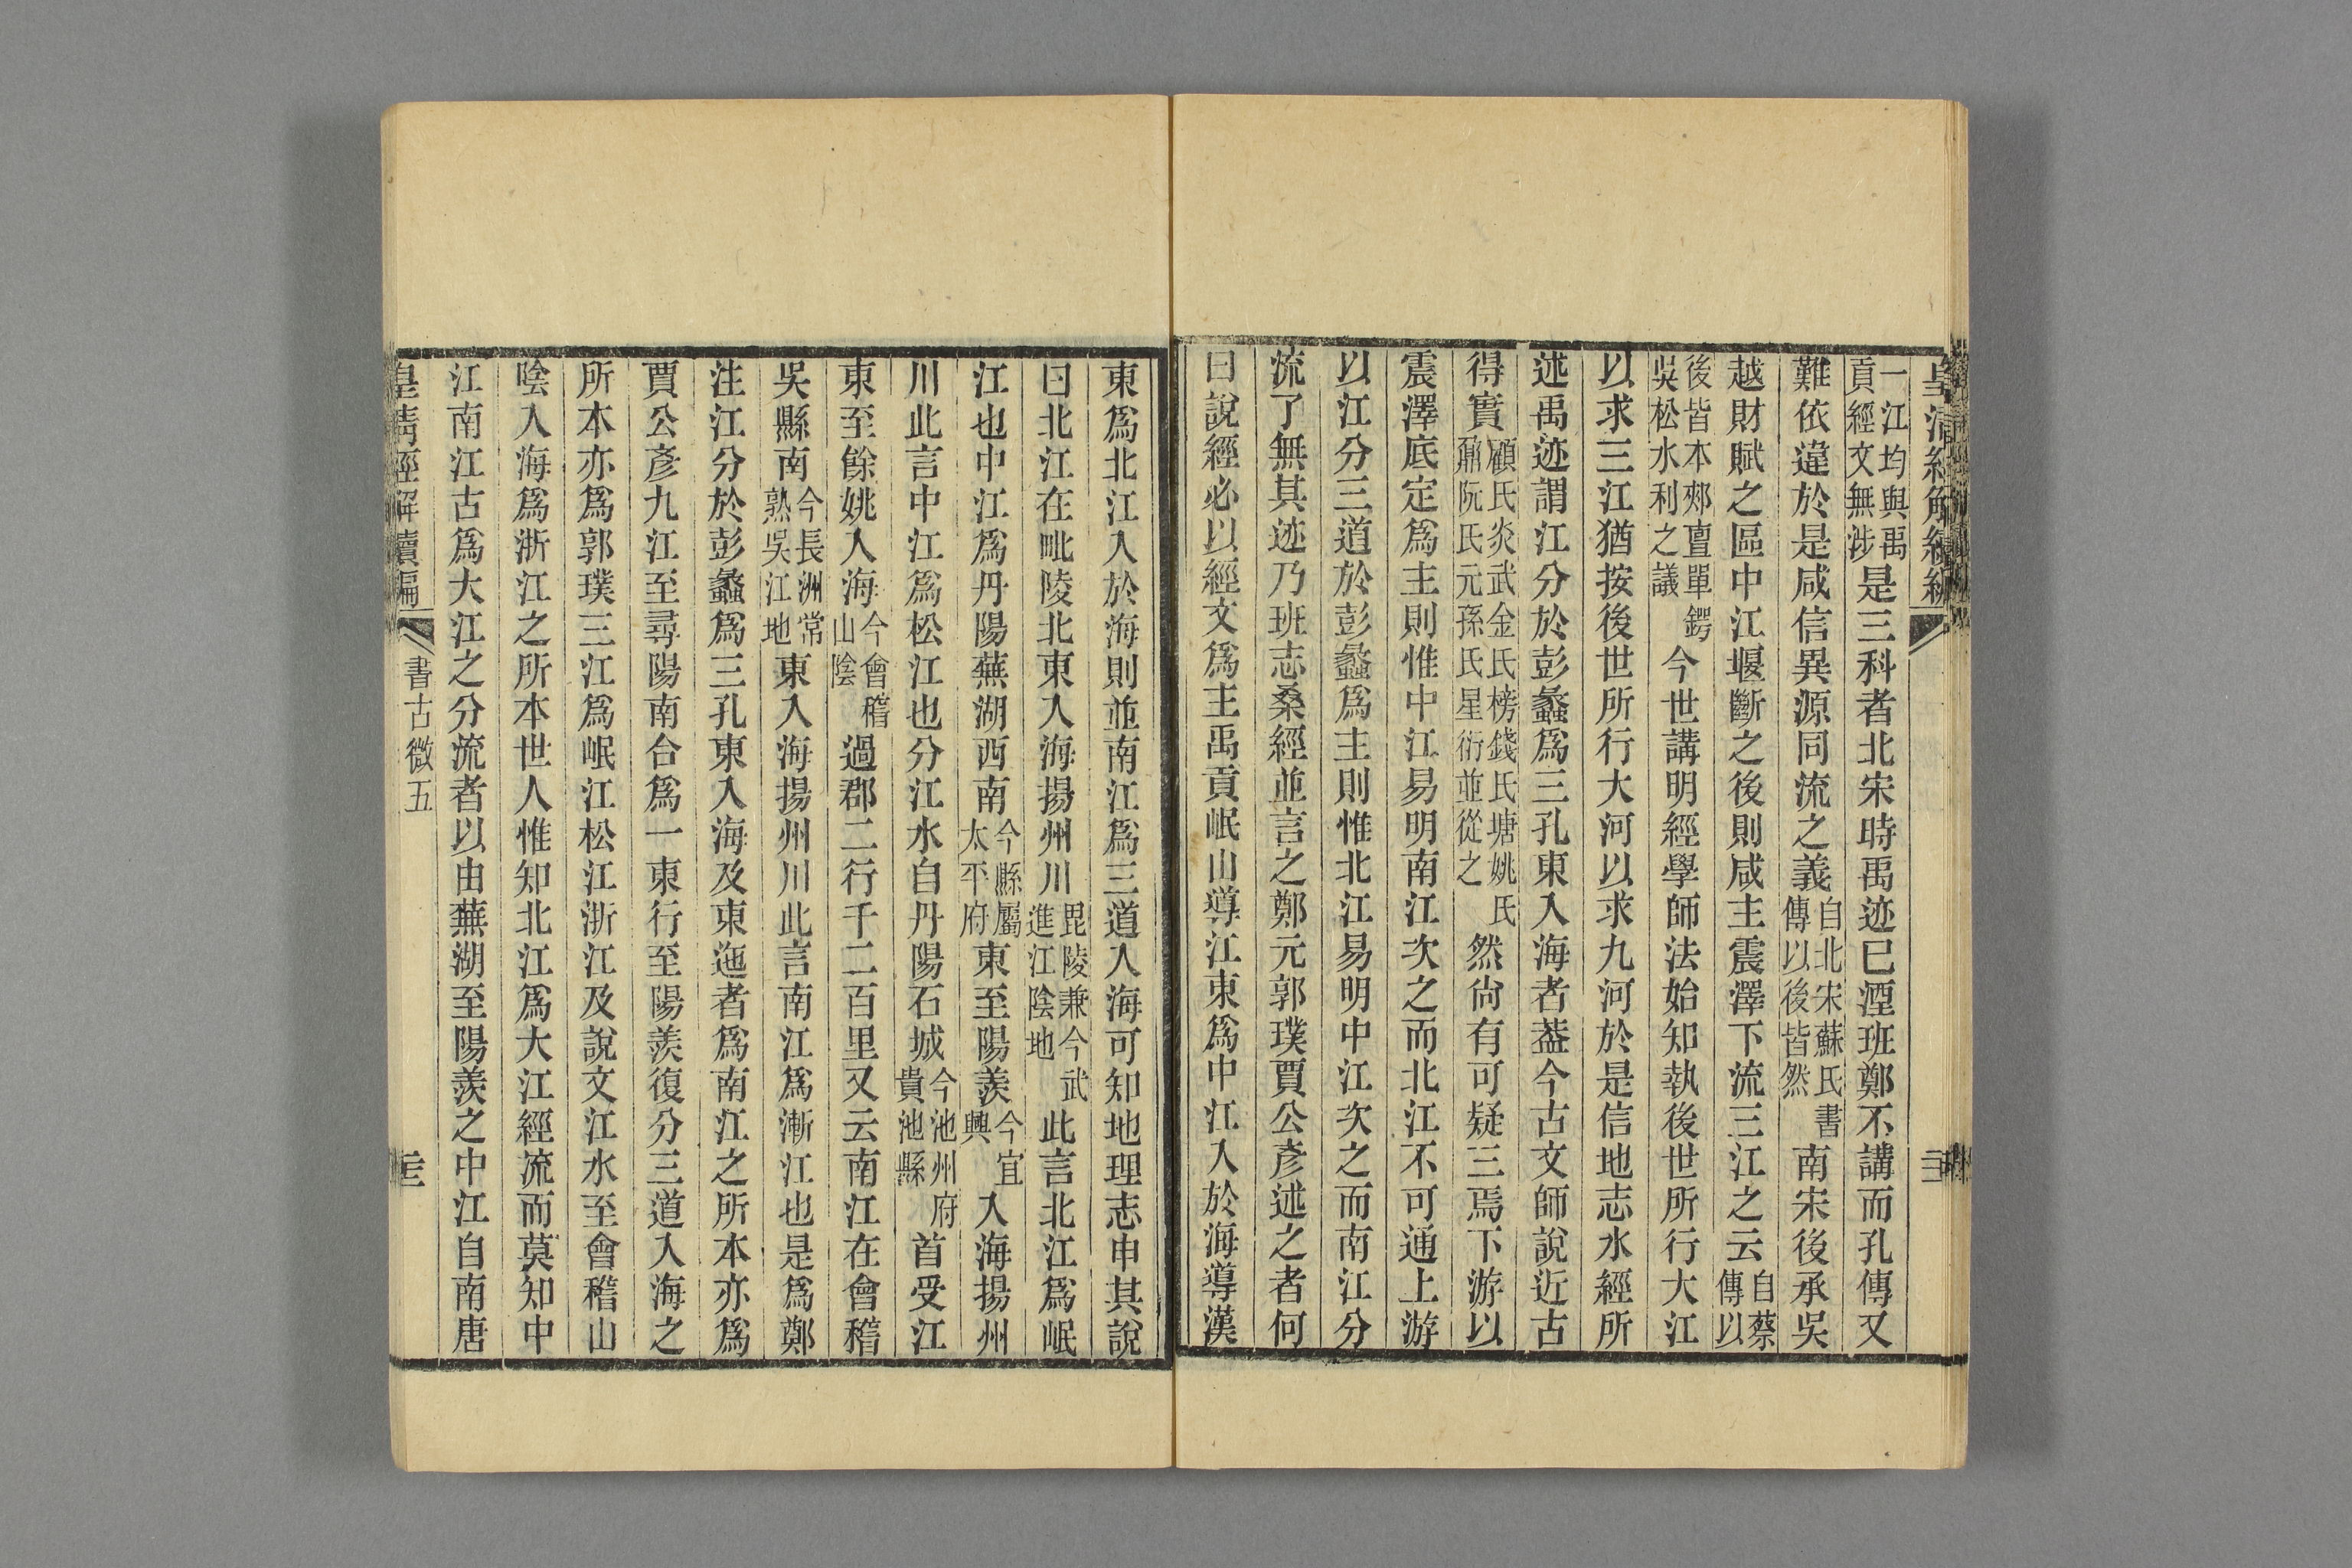 皇清經解續編
一江均與禹貢經文無涉是三科者北宋時禹迹巳湮班鄭不講而孔傳又
難依違於是咸信異源同流之義自北宋蘇氏書傳以後皆然南宋後承吳
越財賦之區中江堰斷之後則咸主震澤下流三江之云自蔡傳以
後皆本郟亶單鍔吳松水利之議今世講明經學師法始知執後世所行大江
以求三江猶按後世所行大河以求九河於是信地志水經所
述禹迹謂江分於彭蠡爲三孔東入海者葢今古文師說近古
得實顧氏炎武金氏榜錢氏塘姚氏鼐阮氏元孫氏星衍並從之然尙有可疑三焉下游以
震澤底定爲主則惟中江易明南江次之而北江不可通上游
以江分三道於彭蠡爲主則惟北江易明中江次之而南江分
流了無其迹乃班志桑經並言之鄭元郭璞賈公彥述之者何
曰說經必以經文爲主禹貢岷山導江東爲中江入於海導漢
東爲北江入於海則並南江爲三道入海可知地理志申其說
曰北江在毗陵北東入海揚州川毘陵兼今武進江陰地此言北江爲岷
江也中江爲丹陽蕪湖西南今縣屬太平府東至陽羨今宜興入海揚州
川此言中江爲松江也分江水自丹陽石城今池州府貴池縣首受江
東至餘姚入海今會稽山陰過郡二行千二百里又云南江在會稽
吳縣南今長洲常熟吳江地東入海揚州川此言南江爲漸江也是爲鄭
注江分於彭蠡爲三孔東入海及東迤者爲南江之所本亦爲
賈公彥九江至尋陽南合爲一東行至陽羨復分三道入海之
所本亦爲郭璞三江爲岷江松江浙江及說文江水至會稽山
陰入海爲浙江之所本世人惟知北江爲大江經流而莫知中
江南江古爲大江之分流者以由蕪湖至陽羨之中江自南唐
皇清經解續編
書古微五